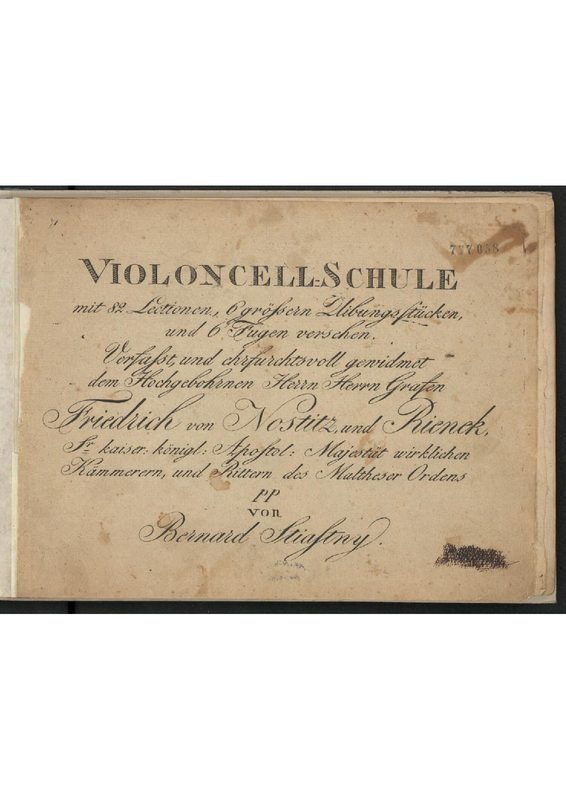 777038
VIOLONCELL=SCHULE
mit 82 Lectionen, 6 grössern Uibungsstücken,
und 6 Fugen versehen.
Verfasst, und ehrfurchtsvoll gewidmet
dem Hochgebohrnen Herrn Herrn Grafen
Friedrich von Nostitz und Rienek,
Sr. kaiser: königl: Apostol: Majestät wirklichen
Kämmerern, und Rittern des Maltheser Ordens
pp
von
Bernard Stiastny.